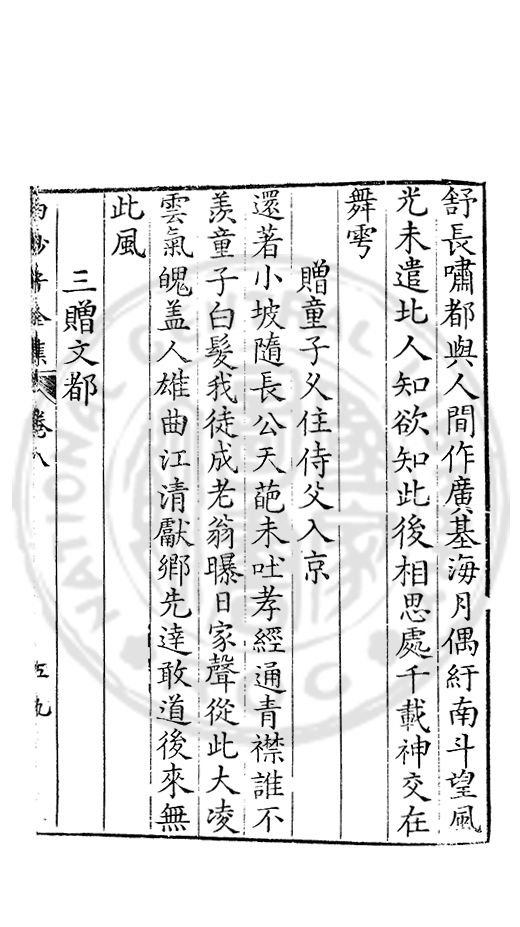 舒長嘯都與人間作廣基海月偶紆南斗望風
光未遣北人知欲知此後相思處千載神交在
舞雩
贈童子乆住侍父入京
還著小坡隨長公天葩未吐孝經通青襟誰不
羨童子白髮我徒成老翁曝日家聲從此大凌
雲氣魄盖人雄曲江清獻鄉先達敢道後來無
此風
三贈文都
全集 卷八
五九
NATIONAL CENTRAL LIBRARY